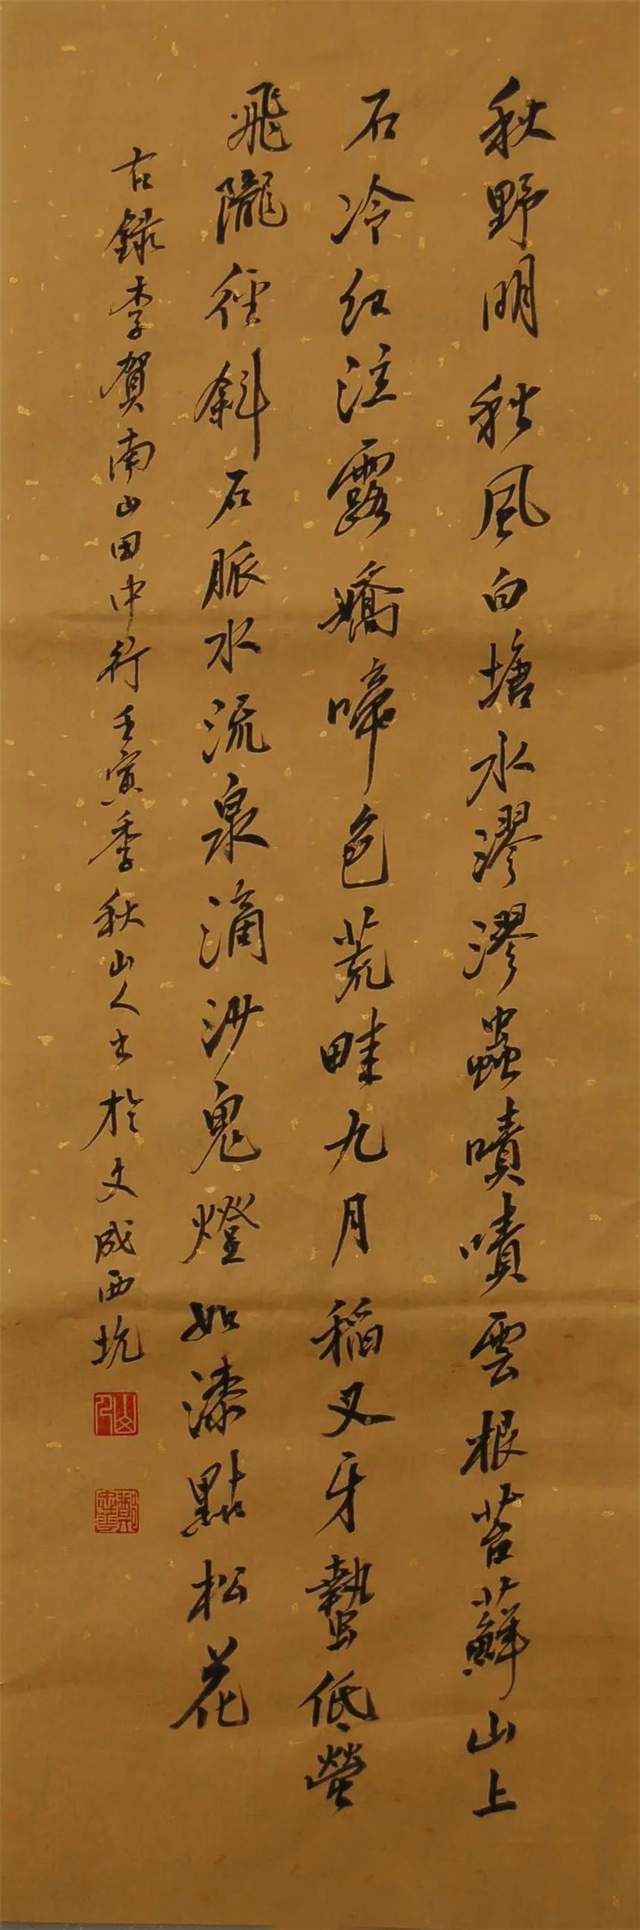 秋野明秋風白塘水漻漻蟲嘖嘖雲根苔蘚山上
石冷紅泣露嬌啼色荒畦九月稻叉牙蟄低螢
飛隴徑斜石脈水流泉滴沙鬼燈如漆點松花
右錄李賀南山田中行壬寅季秋山人書於文成西坑